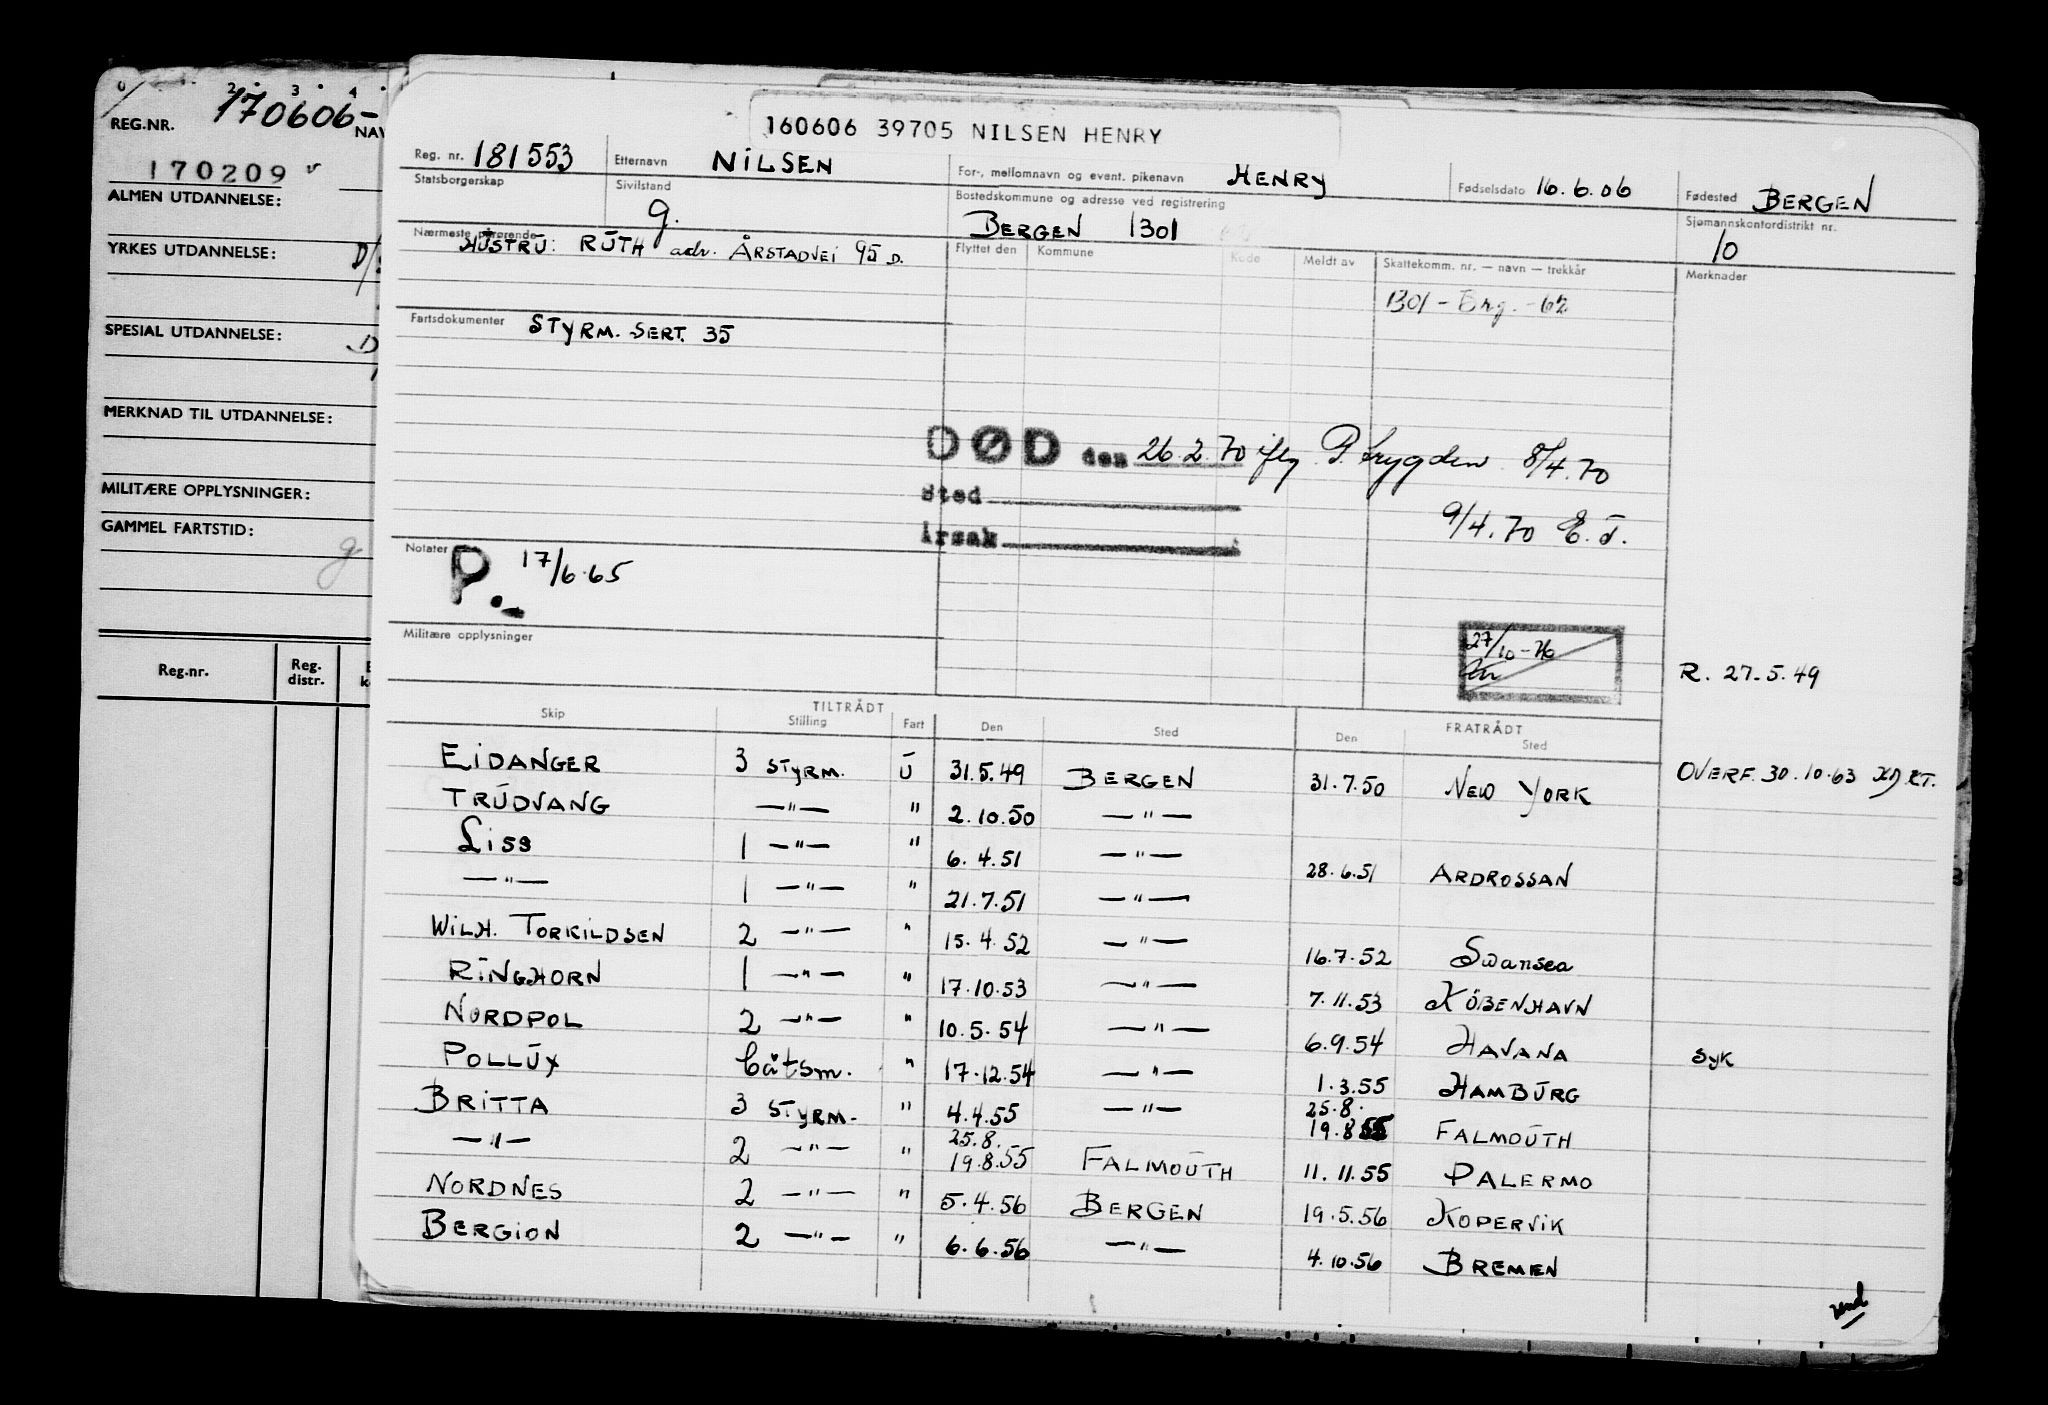 0 2 3 4
REG.NR. 170606- NAV
170209
ALMEN UTDANNELSE:
YRKES UTDANNELSE: D/
SPESIAL UTDANNELSE: D
MERKNAD TIL UTDANNELSE:
MILITÆRE OPPLYSNINGER:
GAMMEL FARTSTID:
g
Reg.nr. Reg. distr.
160606 39705 NILSEN HENRY
Reg. nr. 181553 Etternavn NILSEN For-, mellomnavn og event. pikenavn HENRY Fødselsdato 16.6.06 Fødested BERGEN
Statsborgerskap Sivilstand g. Bostedskommune og adresse ved registrering BERGEN 1301 Sjømannskontordistrikt nr. 10
Nærmeste pårørende HUSTRU: RUTH adr. ÅRSTADVEI 95 D. Flyttet den Kommune Kode Meldt av Skattekomm. nr. — navn — trekkår Merknader
1301 - Brg. - 62
Fartsdokumenter STYRM. SERT. 35
DØD den 26.2.70 ifлg P.trygden 8/4.70
Sted
9/4.70 E.T.
Årsak
Notater P.- 17/6.65
Militære opplysninger
27/10-76
R. 27.5.49
Skip TILTRÅDT Stilling Fart Den Sted FRATRÅDT Den Sted
EIDANGER 3 STYRM. U 31.5.49 BERGEN 31.7.50 NEW YORK OVERF. 30.10.63 KT.
TRUDVANG —"— " 2.10.50 —"—
LISS 1 —"— " 6.4.51 —"— 28.6.51 ARDROSSAN
—"— 1 —"— " 21.7.51 —"—
WILH. TORKILDSEN 2 —"— " 15.4.52 —"— 16.7.52 Swansea
RINGHORN 1 —"— " 17.10.53 —"— 7.11.53 KÖBENHAVN
NORDPOL 2 —"— " 10.5.54 —"— 6.9.54 HAVANA SYK
POLLUX båtsm. " 17.12.54 —"— 1.3.55 HAMBURG
BRITTA 3 STYRM. " 4.4.55 —"— 25.8. 19.8.55 FALMOUTH
—"— 2 —"— " 25.8. 19.8.55 FALMOUTH 11.11.55 PALERMO
NORDNES 2 —"— " 5.4.56 BERGEN 19.5.56 KOPERVIK
BERGION 2 —"— " 6.6.56 —"— 4.10.56 BREMEN
vend